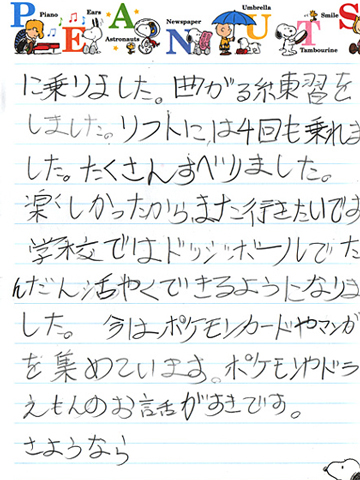 Piano Ears Astronauts Newspaper Umbrella Smile Tambourine
PEANUTS
に乗りました。曲がる練習を
しました。リフトには4回も乗れま
した。たくさんすべりました。
楽しかったからまた行きたいです
学校ではドッジボールでだ
んだん活やくできるようになりま
した。 今はポケモンカードやマンガ
を集めています。ポケモンやドラ
えもんのお話がすきです。
さようなら